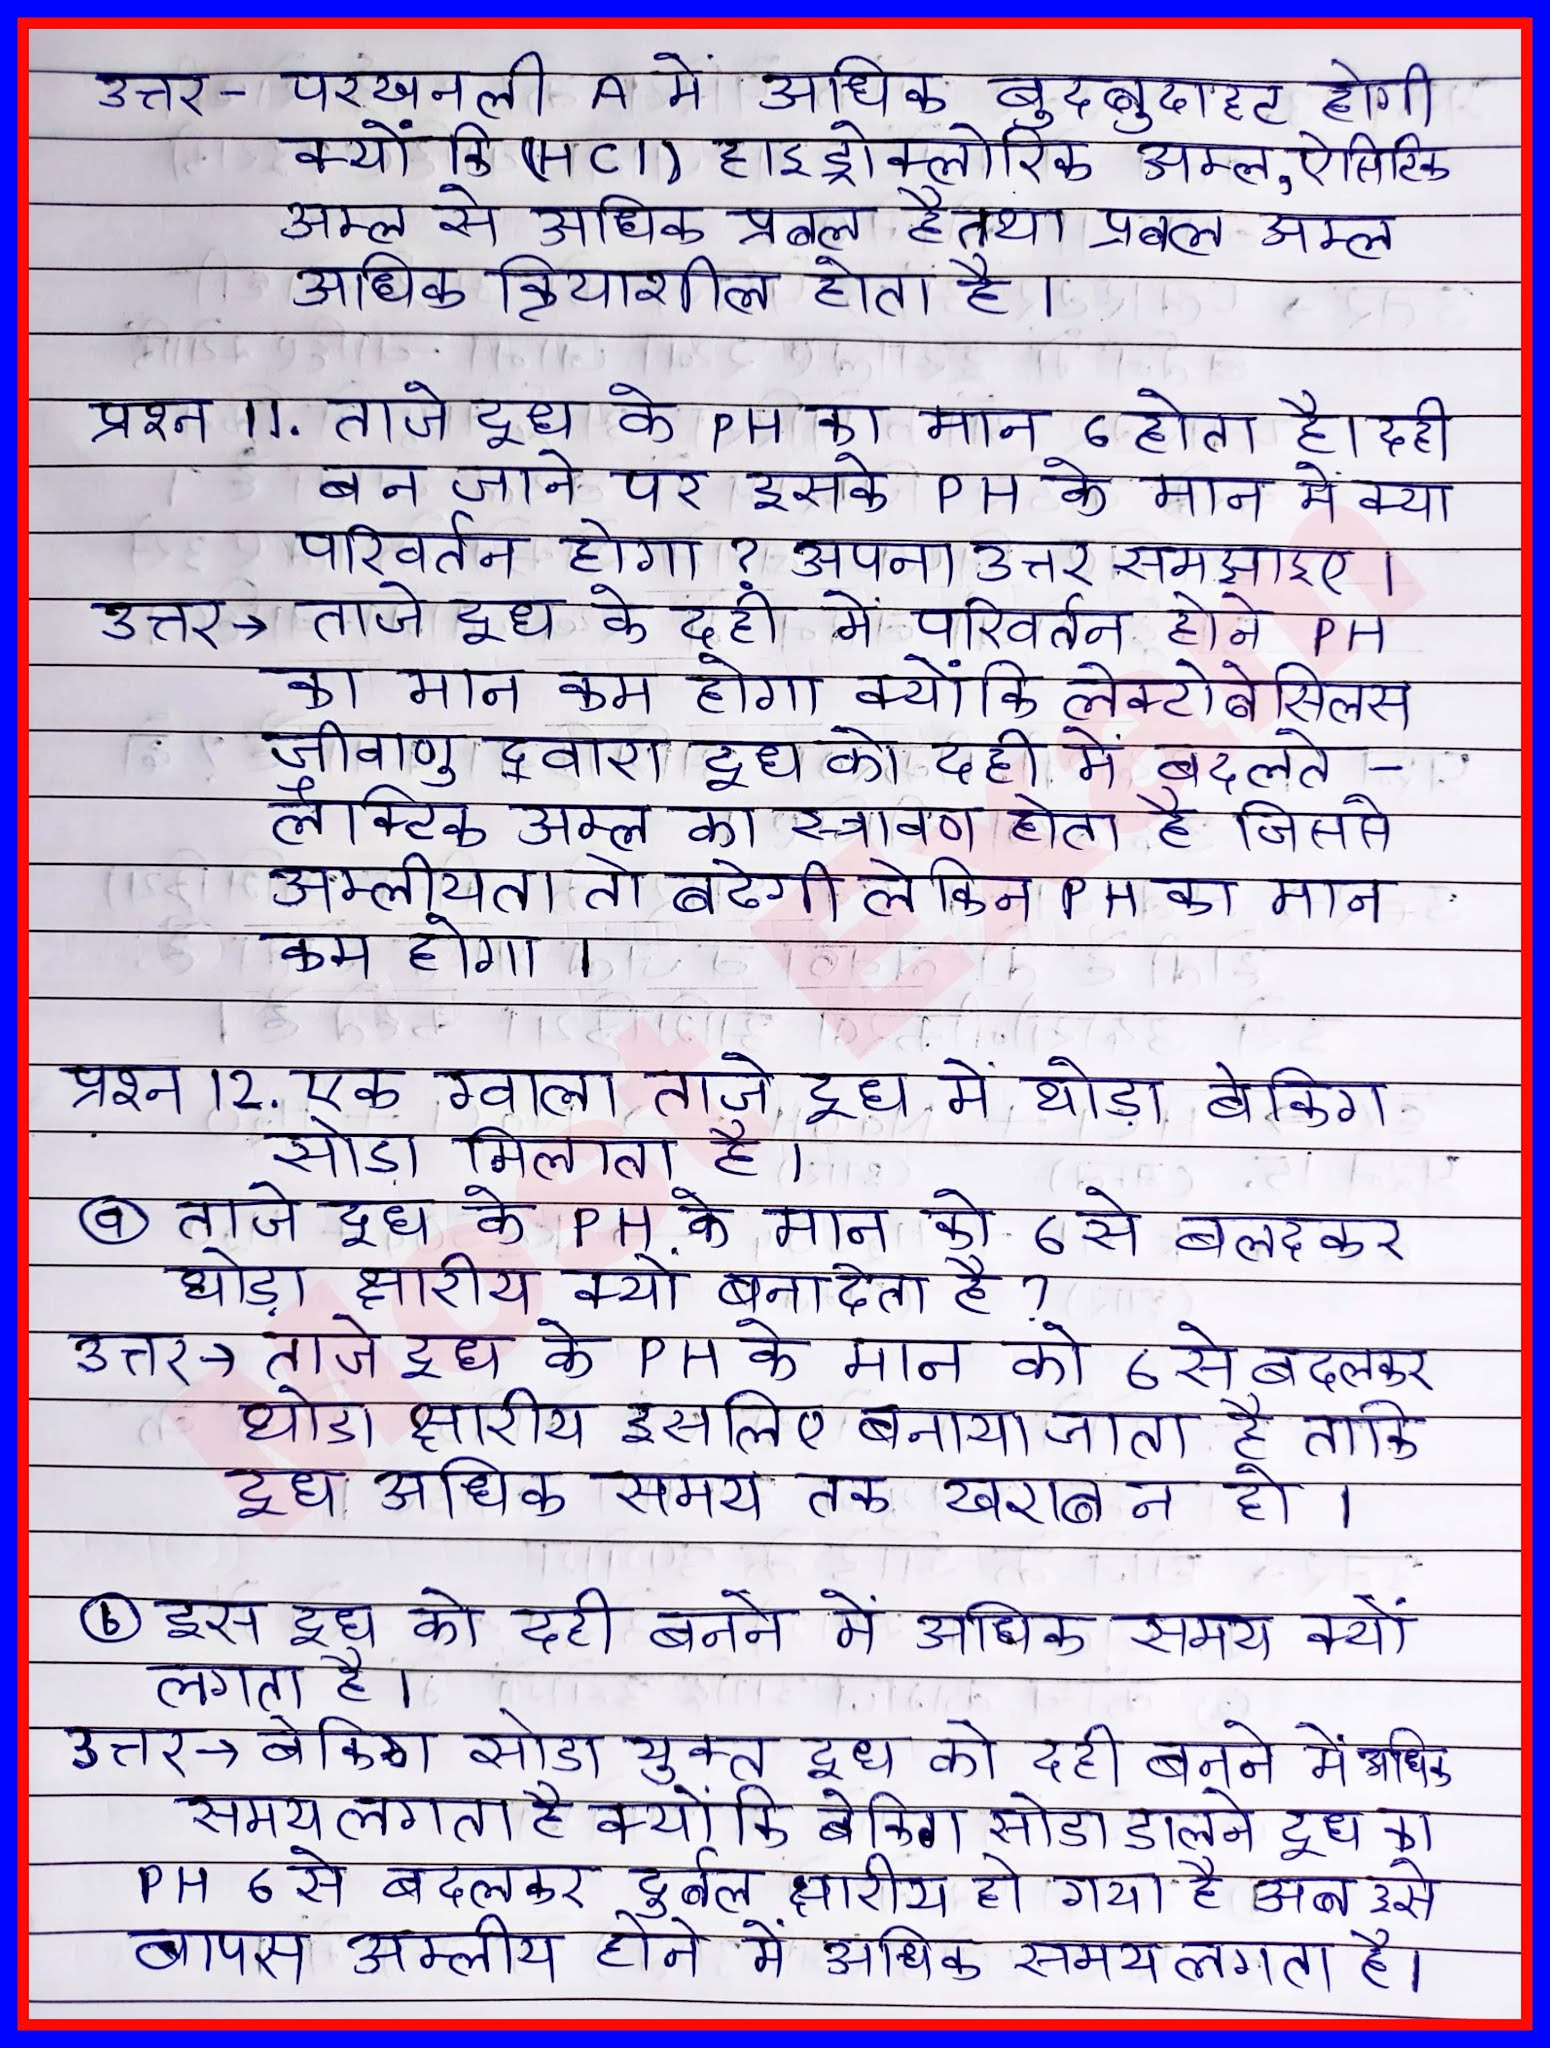 उत्तर - परखनली A में अधिक बुदबुदाहट होगी
क्यों कि (HCl) हाइड्रोक्लोरिक अम्ल, ऐसिटिक
अम्ल से अधिक प्रबल है तथा प्रबल अम्ल
अधिक क्रियाशील होता है।
प्रश्न 11. ताजे दूध के PH का मान 6 होता है। दही
बन जाने पर इसके PH के मान में क्या
परिवर्तन होगा? अपना उत्तर समझाइए।
उत्तर→ ताजे दूध के दही में परिवर्तन होने PH
का मान कम होगा क्योंकि लेक्टोबेसिलस
जीवाणु द्वारा दूध को दही में बदलते -
लैक्टिक अम्ल का स्त्रावण होता है जिससे
अम्लीयता तो बढेगी लेकिन PH का मान
कम होगा।
प्रश्न 12. एक ग्वाला ताजे दूध में थोड़ा बेकिग
सोडा मिलाता है।
(a) ताजे दूध के PH के मान को 6 से बलदकर
थोड़ा क्षारीय क्यों बना देता है?
उत्तर→ ताजे दूध के PH के मान को 6 से बदलकर
थोडा क्षारीय इसलिए बनाया जाता है ताकि
दूध अधिक समय तक खराब न हो।
(b) इस दूध को दही बनने में अधिक समय क्यों
लगता है।
उत्तर→ बेकिग सोडा युक्त दूध को दही बनने में अधिक
समय लगता है क्यों कि बेकिग सोडा डालने दूध का
PH 6 से बदलकर दुर्बल क्षारीय हो गया है अब उसे
बापस अम्लीय होने में अधिक समय लगता है।
Most Exam